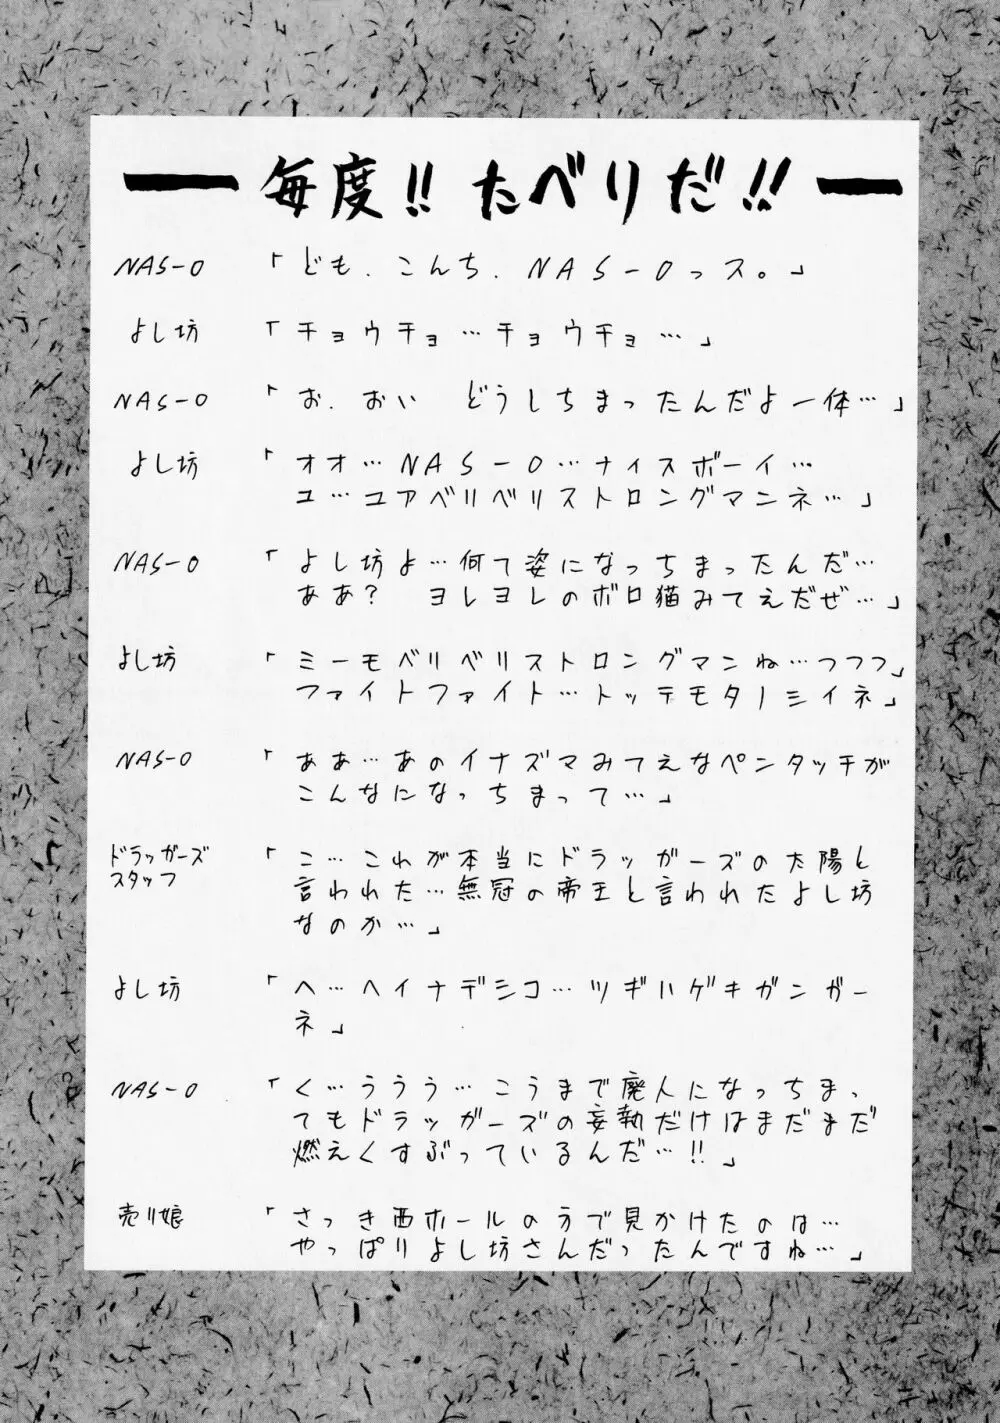 毎度!! たべりだ!!
NAS-O 「ども、こんち、NAS-Oっス。」
よし坊 「チョウチョ…チョウチョ…」
NAS-O 「お、おい どうしちまったんだよ一体…」
よし坊 「オオ…NAS-O…ナイスボーイ…
ユ…ユアベリベリストロングマンネ…」
NAS-O 「よし坊よ…何て姿になっちまったんだ…
ああ? ヨレヨレのボロ猫みてえだぜ…」
よし坊 「ミーモベリベリストロングマンね…フフフ」
ファイトファイト…トッテモタノシイネ」
NAS-O 「ああ…あのイナズマみてえなペンタッチが
こんなになっちまって…」
ドラッガーズ
スタッフ 「こ…これが本当にドラッガーズの太陽と
言われた…無冠の帝王と言われたよし坊
なのか…」
よし坊 「ヘ…ヘイナデシコ…ツギハゲキガンガー
ネ」
NAS-O 「く…ううう…こうまで廃人になっちまっ
てもドラッガーズの妄執だけはまだまだ
燃えくすぶっているんだ…!!」
売り娘 「さっき西ホールの方で見かけたのは…
やっぱりよし坊さんだったんですね…」